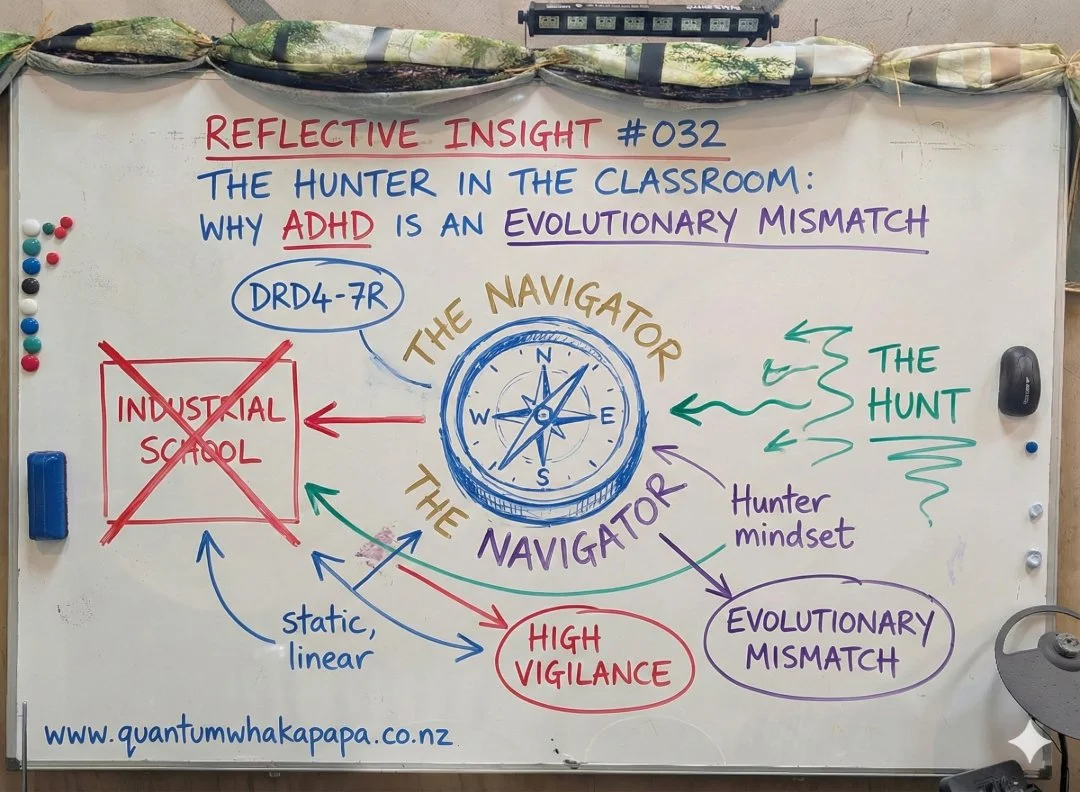 REFLECTIVE INSIGHT #032
THE HUNTER IN THE CLASSROOM:
WHY ADHD IS AN EVOLUTIONARY MISMATCH
DRD4-7R
THE NAVIGATOR
N
W
E
S
INDUSTRIAL
SCHOOL
THE
HUNT
THE
NAVIGATOR
Hunter
mindset
static,
linear
HIGH
VIGILANCE
EVOLUTIONARY
MISMATCH
www.quantumwhakapapa.co.nz